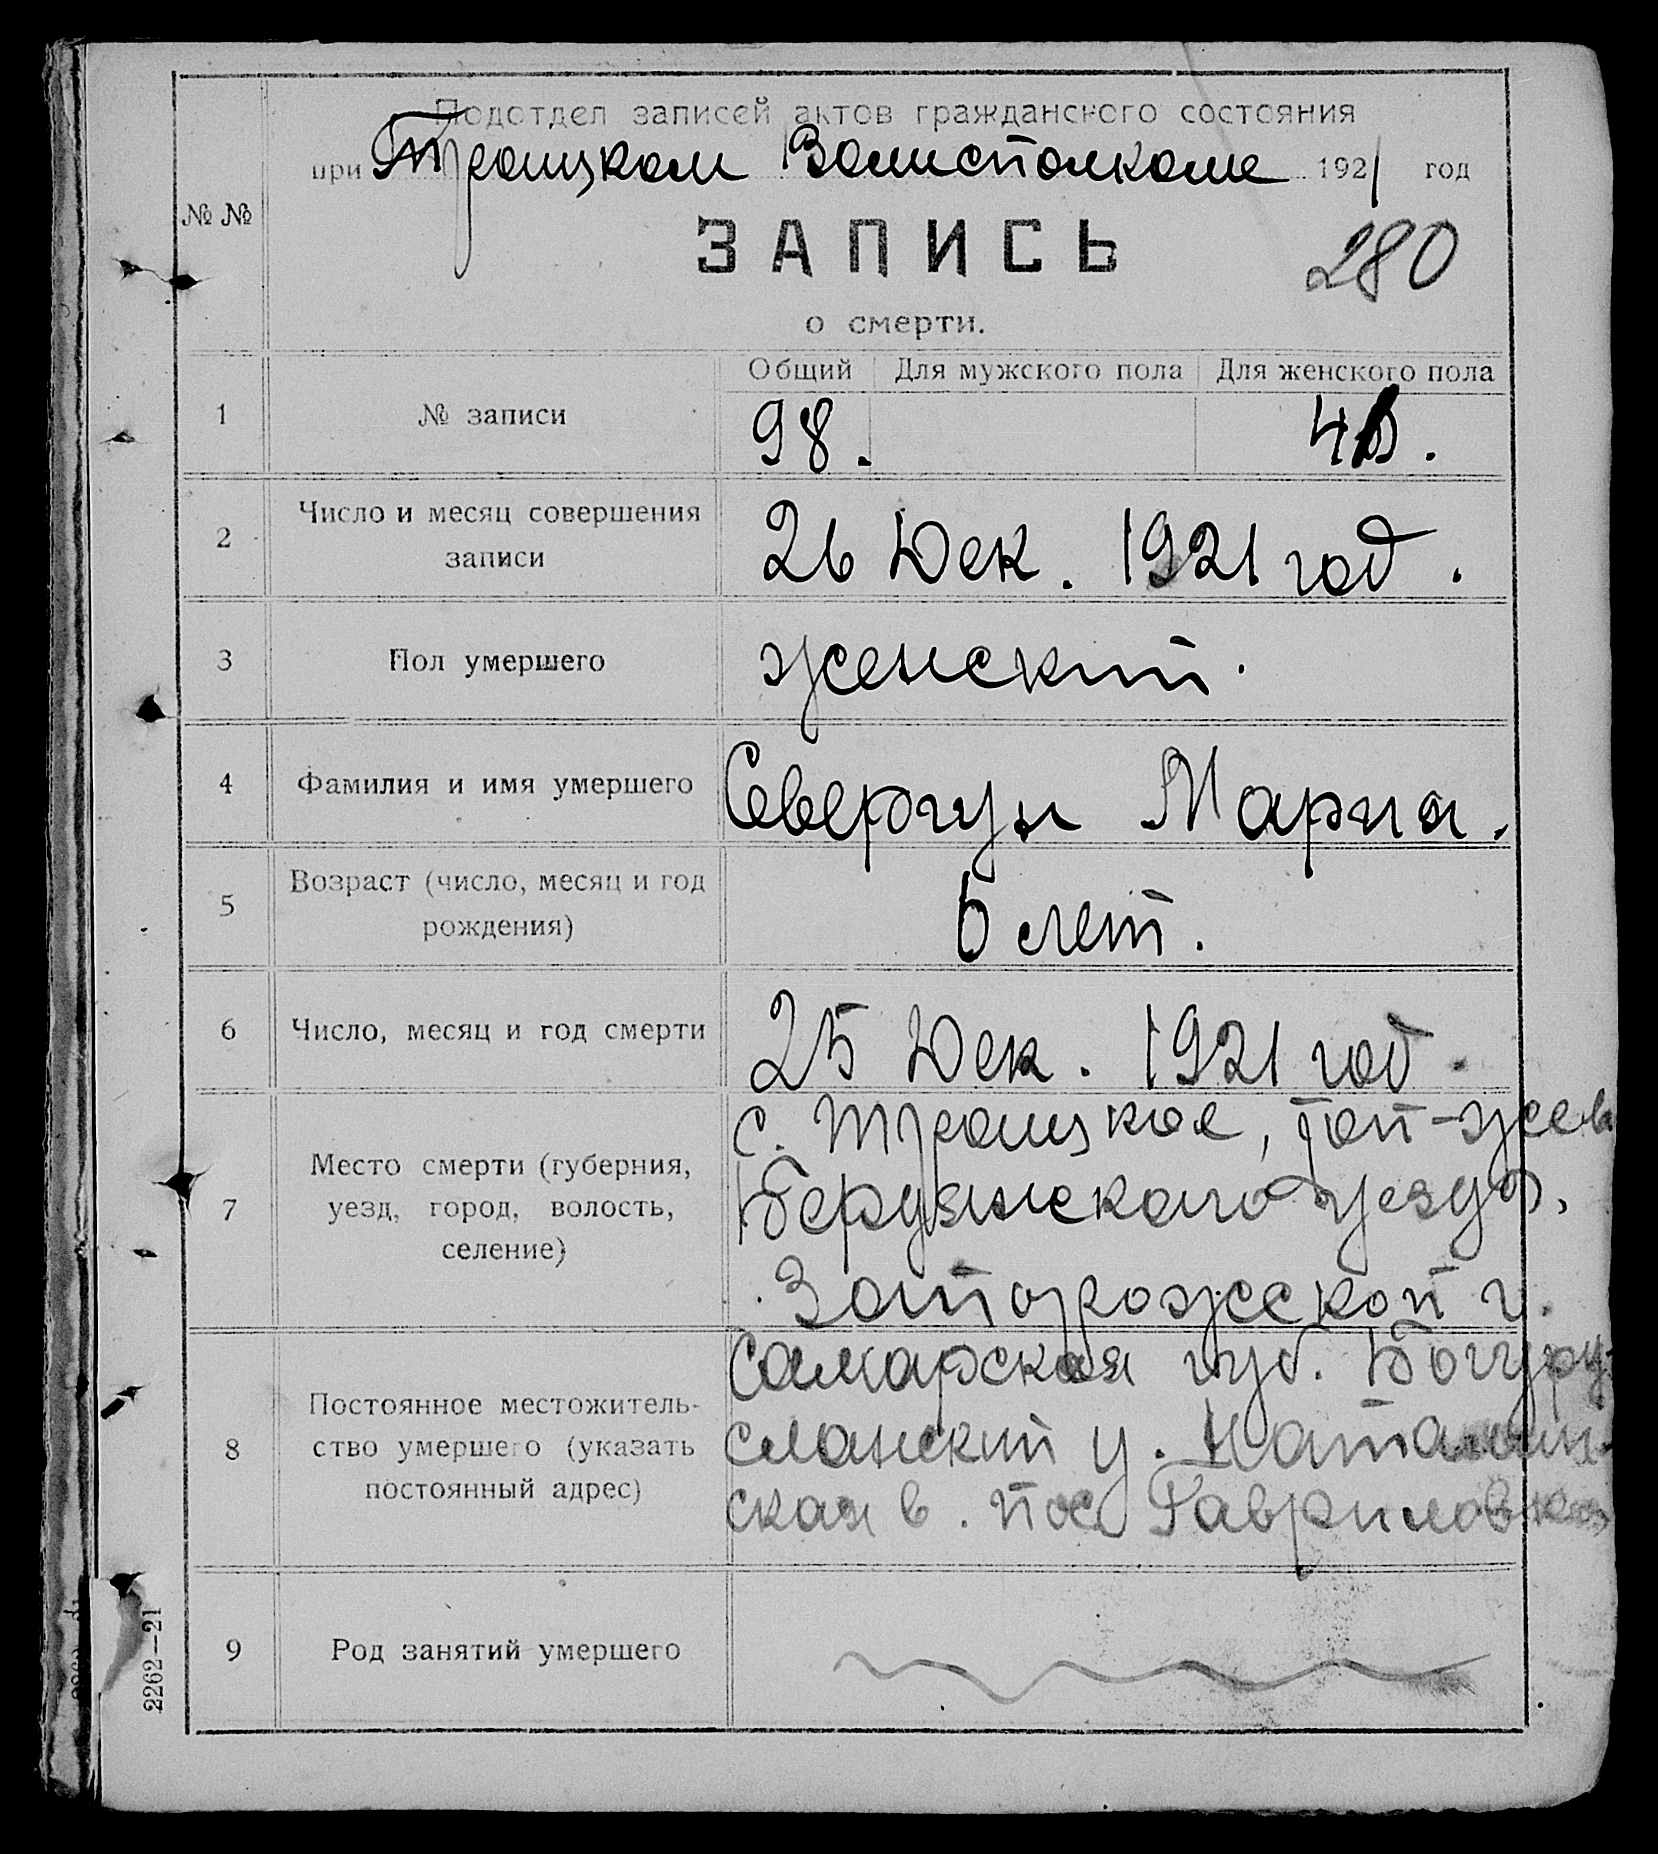 Подотдел записей актов гражданского состояния
при Троицком Волисполкоме 1921 год
№ №
ЗАПИСЬ
280
о смерти.
Общий Для мужского пола Для женского пола
1 № записи 98.
2 Число и месяц совершения записи 26 Дек. 1921 год.
3 Пол умершего женский.
4 Фамилия и имя умершего Севергун Мария.
5 Возраст (число, месяц и год рождения) 6 лет.
6 Число, месяц и год смерти 25 Дек. 1921 год.
7 Место смерти (губерния, уезд, город, волость, селение) с. Троицкое,
Бердянского уезда,
Запорожской г.
8 Постоянное местожительство умершего (указать постоянный адрес) Самарская губ. Бугуру-
сланский у.
ская в. пос Гавриловка
9 Род занятий умершего
2262—21